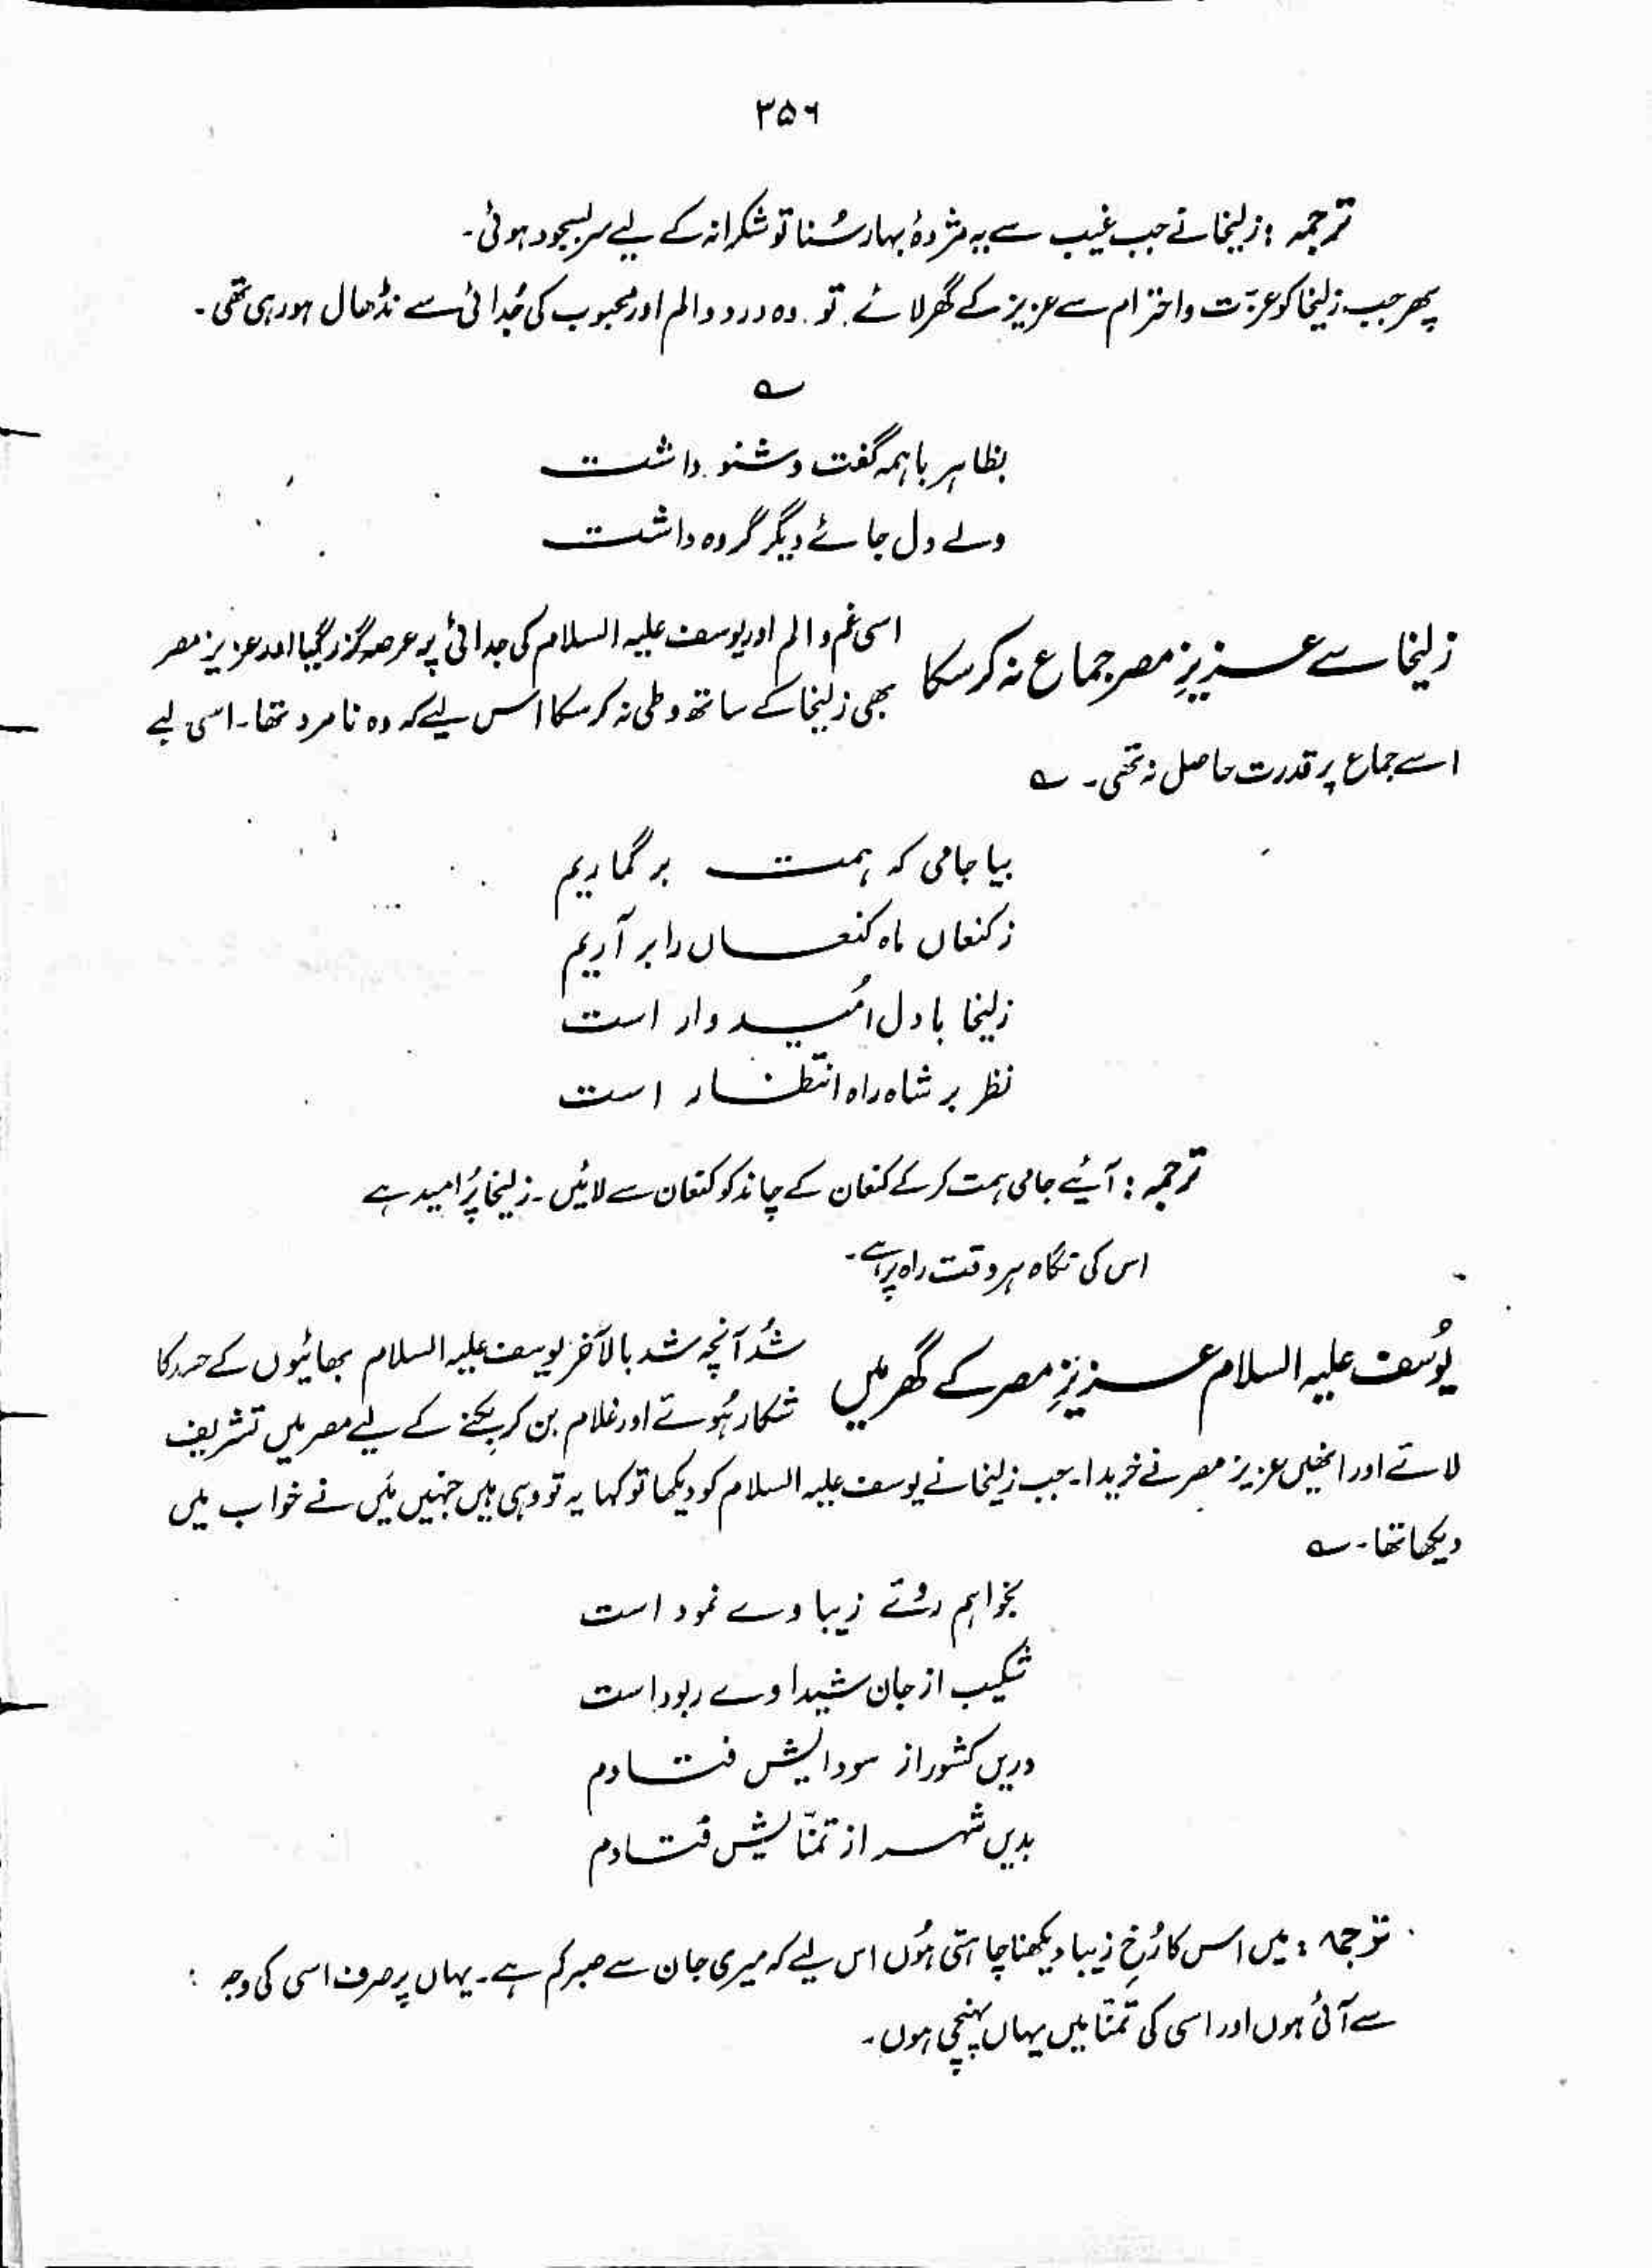 ۳۵۶
ترجمہ : زلیخا نے جب غیب سے یہ مژدۂ بہار سُنا تو شکرانہ کے لیے سربسجود ہوئی۔
پھر جب زلیخا کو عزّت و احترام سے عزیز کے گھر لائے تو وہ درد و الم اور محبوب کی جُدائی سے نڈھال ہو رہی تھی۔
؎
بظاہر باہمہ گفت و شنو داشت
ولے دل جائے دیگر گروہ داشت
زلیخا سے عزیزِ مصر جماع نہ کر سکا اسی غم و الم اور یوسف علیہ السلام کی جدائی پر عرصہ گزر گیا اور عزیز مصر
بھی زلیخا کے ساتھ وطی نہ کر سکا اس لیے کہ وہ نامرد تھا۔ اسی لیے
اسے جماع پر قدرت حاصل نہ تھی۔ ؎
بیا جامی کہ ہمت بر گماریم
ز کنعاں ماہ کنعاں را بر آریم
زلیخا با دل اُمیدوار است
نظر بر شاہ راہ انتظار است
ترجمہ : آئیے جامی ہمت کر کے کنعان کے چاند کو کنعان سے لائیں۔ زلیخا پُرامید ہے
اس کی نگاہ ہر وقت راہ پر ہے۔
یُوسف علیہ السلام عزیزِ مصر کے گھر میں شُد آنچہ شد بالآخر یوسف علیہ السلام بھائیوں کے حسد کا
شکار ہُوئے اور غلام بن کر بکنے کے لیے مصر میں تشریف
لائے اور انھیں عزیز مصر نے خریدا۔ جب زلیخا نے یوسف علیہ السلام کو دیکھا تو کہا یہ تو وہی ہیں جنہیں مَیں نے خواب میں
دیکھا تھا۔ ؎
بخواہم روئے زیبا وے نمود است
شکیب از جان شیدا وے ربود است
دریں کشور از سودایش فتادم
بدیں شہر از تمنّایش فتادم
ترجمہ : میں اس کا رُخِ زیبا دیکھنا چاہتی ہُوں اس لیے کہ میری جان سے صبر کم ہے۔ یہاں پر صرف اسی کی وجہ
سے آئی ہوں اور اسی کی تمنّا میں یہاں پہنچی ہوں۔